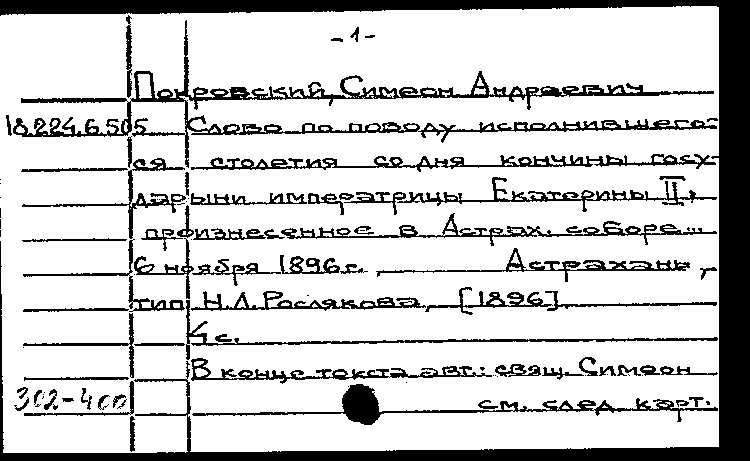 -1-
Покровский, Симеон Андреевич
18.224.6.505 Слово по поводу исполнившего=
ся столетия со дня кончины госу-
дарыни императрицы Екатерины II,
произнесенное в Астрах. соборе...
6 ноября 1896 г., Астрахань,
тип. Н.Л. Рослякова, [1896].
4 с.
В конце текста авт.: свящ. Симеон
302-400 см. след. карт.